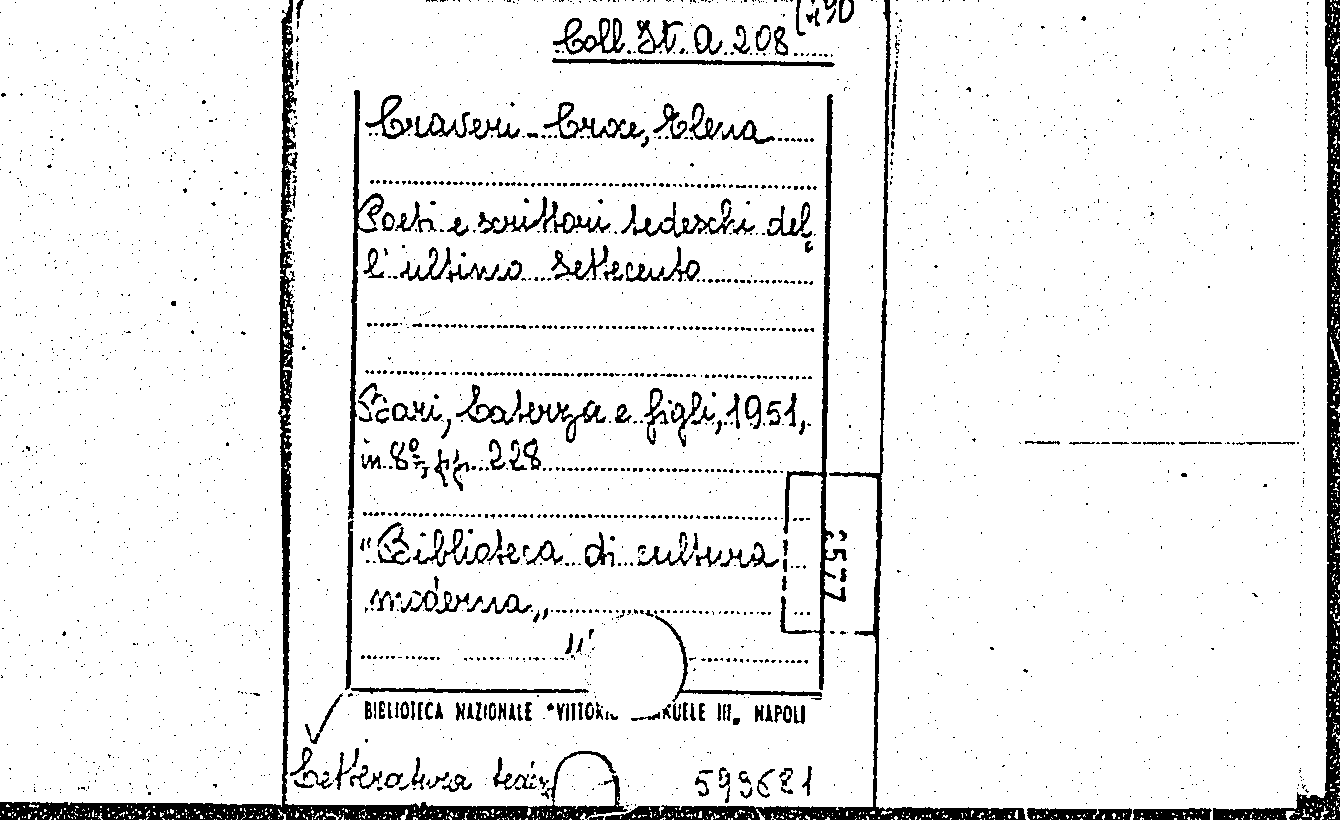 Coll. It. A 208 (490
Craveri-Croce, Elena
Poeti e scrittori tedeschi del
l'ultimo Settecento
Bari, Laterza e figli, 1951,
in 8°, pp. 228
"Biblioteca di cultura
moderna„
2577
BIBLIOTECA NAZIONALE "VITTORIO EMANUELE III„ NAPOLI
Letteratura
593621